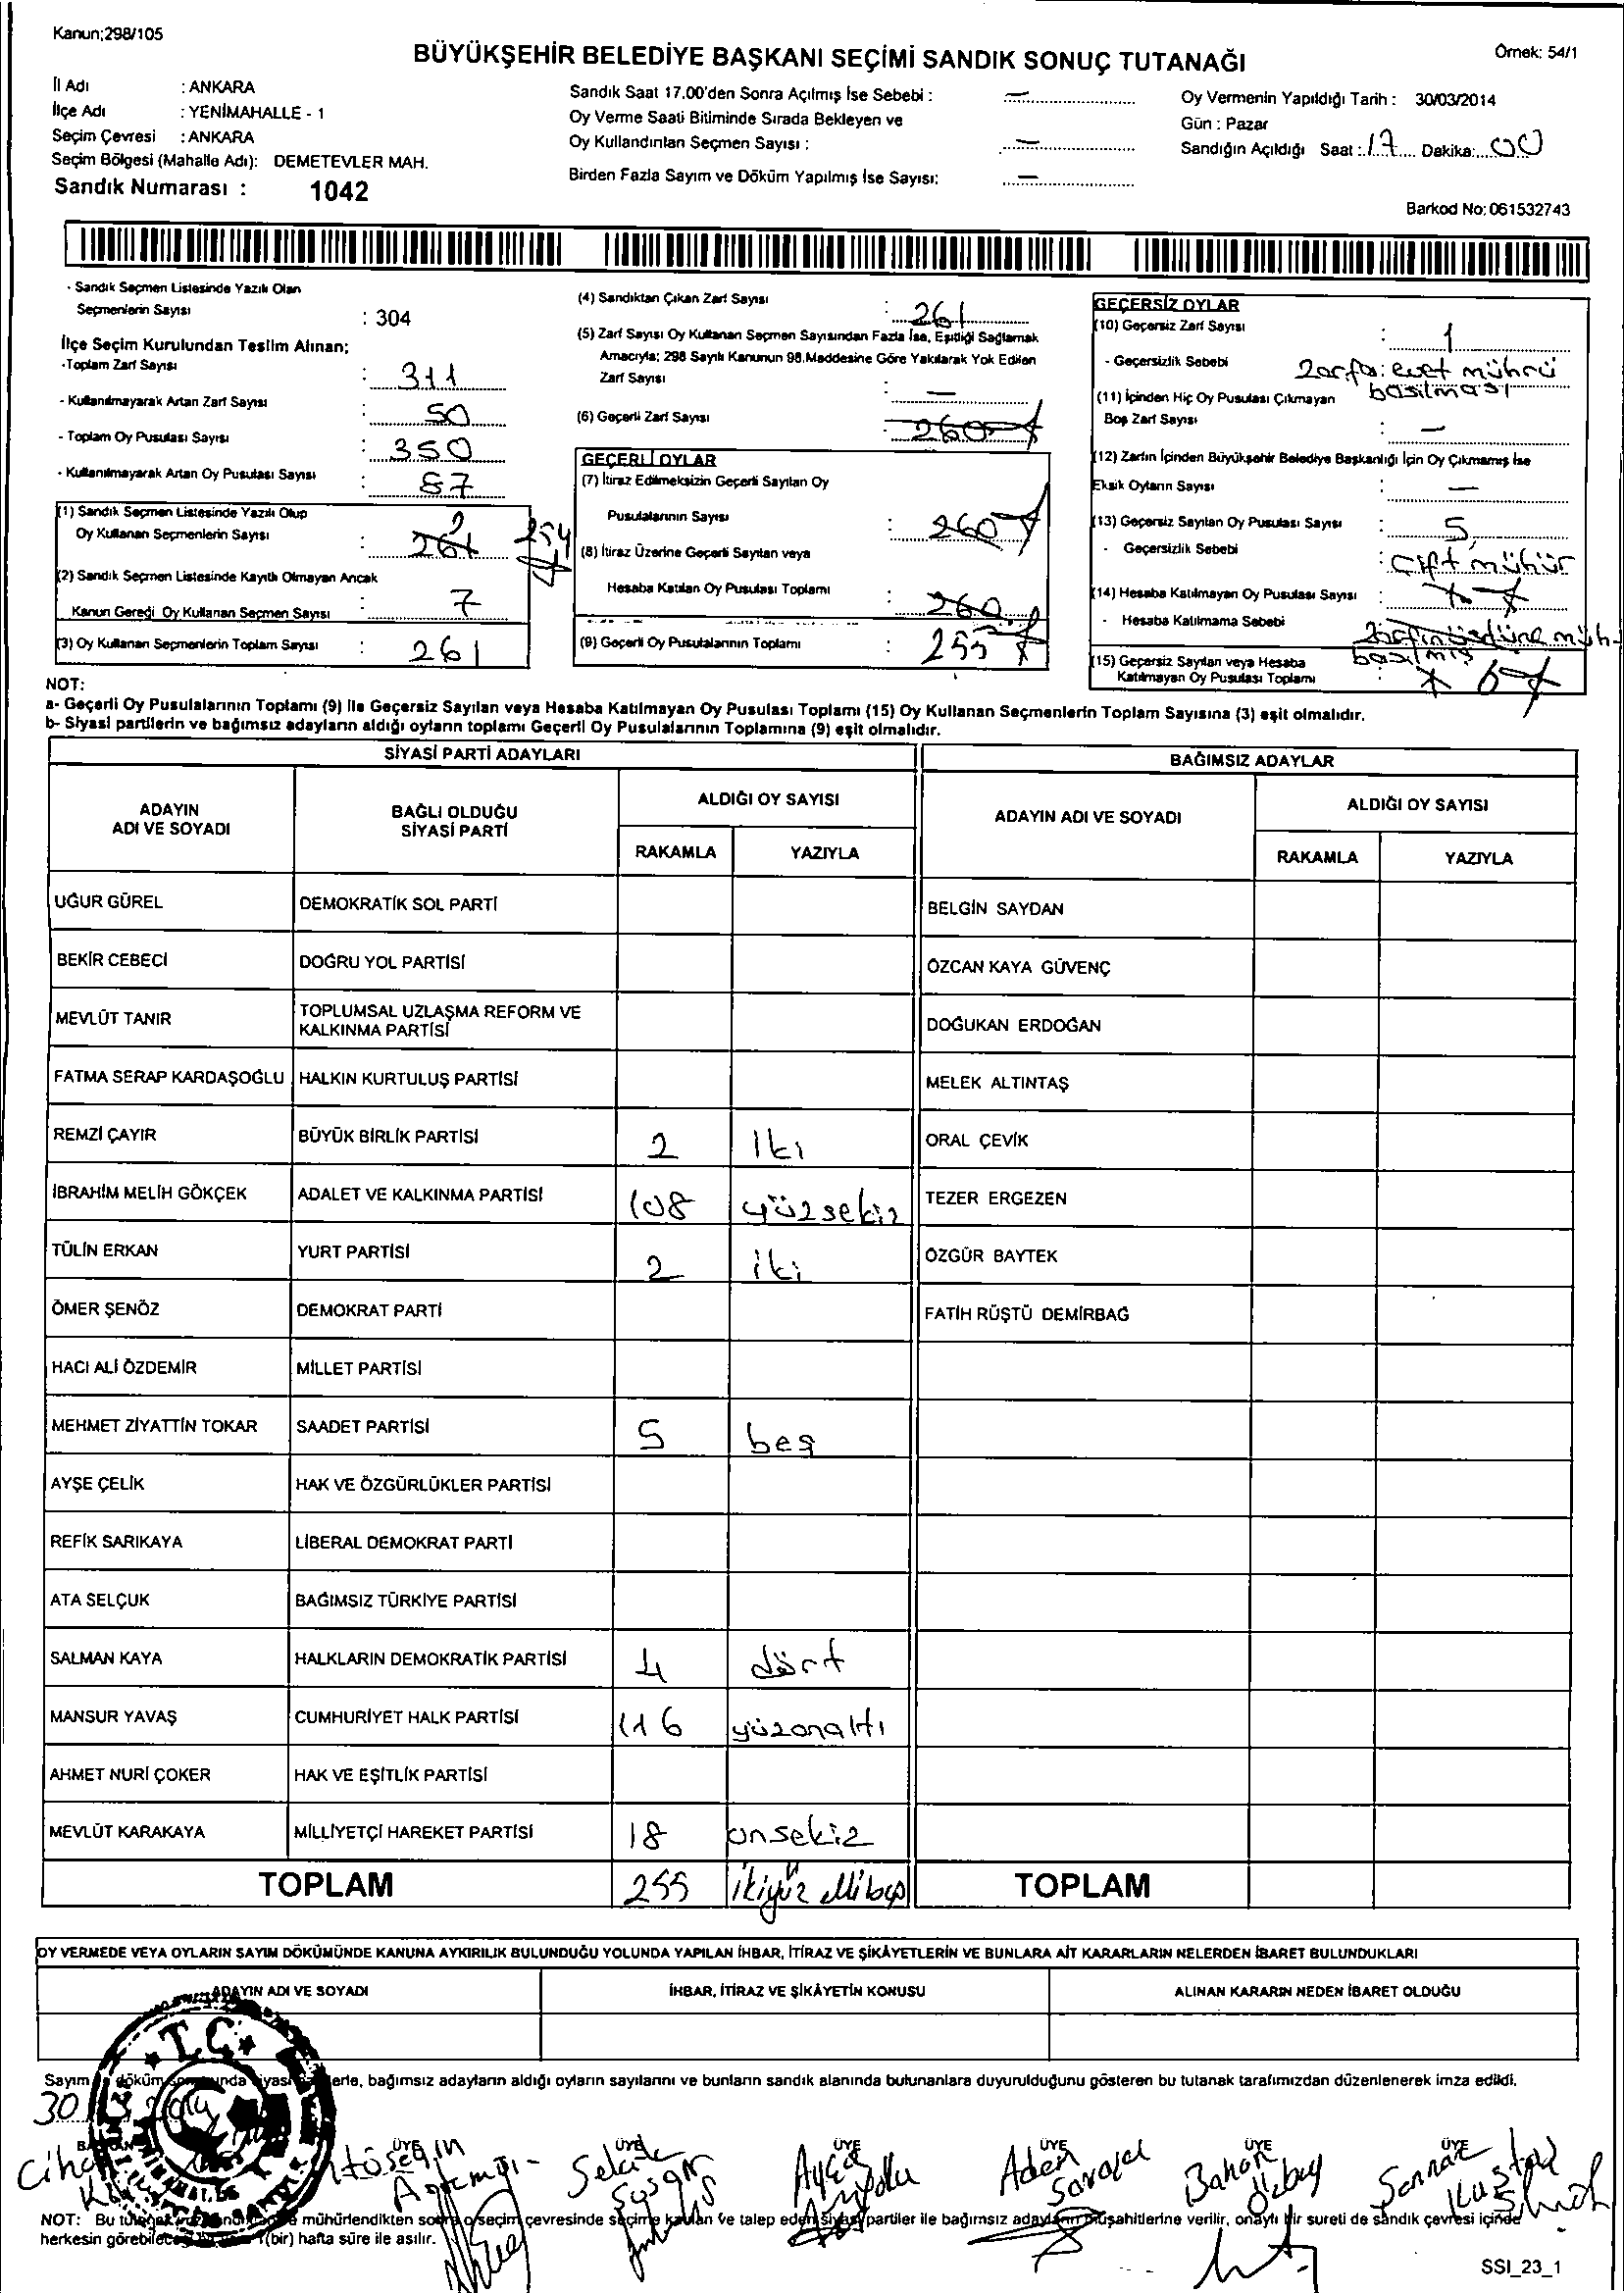 Kanun;298/105
BÜYÜKŞEHİR BELEDİYE BAŞKANI SEÇİMİ SANDIK SONUÇ TUTANAĞI
Örnek: 54/1
İl Adı : ANKARA
İlçe Adı : YENİMAHALLE - 1
Seçim Çevresi : ANKARA
Seçim Bölgesi (Mahalle Adı): DEMETEVLER MAH.
Sandık Numarası : 1042
Sandık Saat 17.00'den Sonra Açılmış İse Sebebi : —
Oy Verme Saati Bitiminde Sırada Bekleyen ve
Oy Kullandırılan Seçmen Sayısı : —
Birden Fazla Sayım ve Döküm Yapılmış İse Sayısı: —
Oy Vermenin Yapıldığı Tarih : 30/03/2014
Gün : Pazar
Sandığın Açıldığı Saat : 17 Dakika: 00
Barkod No: 061532743
- Sandık Seçmen Listesinde Yazılı Olan
Seçmenlerin Sayısı : 304
İlçe Seçim Kurulundan Teslim Alınan;
-Toplam Zarf Sayısı : 311
- Kullanılmayarak Artan Zarf Sayısı : 50
- Toplam Oy Pusulası Sayısı : 350
- Kullanılmayarak Artan Oy Pusulası Sayısı : 87
(1) Sandık Seçmen Listesinde Yazılı Olup
Oy Kullanan Seçmenlerin Sayısı : 261 254
(2) Sandık Seçmen Listesinde Kayıtlı Olmayan Ancak
Kanun Gereği Oy Kullanan Seçmen Sayısı : 7
(3) Oy Kullanan Seçmenlerin Toplam Sayısı : 261
(4) Sandıktan Çıkan Zarf Sayısı : 261
(5) Zarf Sayısı Oy Kullanan Seçmen Sayısından Fazla İse, Eşitliği Sağlamak
Amacıyla; 298 Sayılı Kanunun 98.Maddesine Göre Yakılarak Yok Edilen
Zarf Sayısı : —
(6) Geçerli Zarf Sayısı : 260
GEÇERLİ OYLAR
(7) İtiraz Edilmeksizin Geçerli Sayılan Oy
Pusulalarının Sayısı : 260
(8) İtiraz Üzerine Geçerli Sayılan veya
Hesaba Katılan Oy Pusulası Toplamı : 260
(9) Geçerli Oy Pusulalarının Toplamı : 255
GEÇERSİZ OYLAR
(10) Geçersiz Zarf Sayısı : 1
- Geçersizlik Sebebi zarfa evet mührü
basılması
(11) İçinden Hiç Oy Pusulası Çıkmayan
Boş Zarf Sayısı : —
(12) Zarfın İçinden Büyükşehir Belediye Başkanlığı İçin Oy Çıkmamış İse
Eksik Oyların Sayısı : —
(13) Geçersiz Sayılan Oy Pusulası Sayısı : 5
- Geçersizlik Sebebi : Çift mühür
(14) Hesaba Katılmayan Oy Pusulası Sayısı :
- Hesaba Katılmama Sebebi zarfın üstüne müh.
basılmış
(15) Geçersiz Sayılan veya Hesaba
Katılmayan Oy Pusulası Toplamı : 6
NOT:
a- Geçerli Oy Pusulalarının Toplamı (9) İle Geçersiz Sayılan veya Hesaba Katılmayan Oy Pusulası Toplamı (15) Oy Kullanan Seçmenlerin Toplam Sayısına (3) eşit olmalıdır.
b- Siyasi partilerin ve bağımsız adayların aldığı oyların toplamı Geçerli Oy Pusulalarının Toplamına (9) eşit olmalıdır.
SİYASİ PARTİ ADAYLARI
ADAYIN ADI VE SOYADI
BAĞLI OLDUĞU SİYASİ PARTİ
ALDIĞI OY SAYISI
RAKAMLA YAZIYLA
UĞUR GÜREL DEMOKRATİK SOL PARTİ
BEKİR CEBECİ DOĞRU YOL PARTİSİ
MEVLÜT TANIR TOPLUMSAL UZLAŞMA REFORM VE
KALKINMA PARTİSİ
FATMA SERAP KARDAŞOĞLU HALKIN KURTULUŞ PARTİSİ
REMZİ ÇAYIR BÜYÜK BİRLİK PARTİSİ 2 İki
İBRAHİM MELİH GÖKÇEK ADALET VE KALKINMA PARTİSİ 108 yüzsekiz
TÜLİN ERKAN YURT PARTİSİ 2 iki
ÖMER ŞENÖZ DEMOKRAT PARTİ
HACI ALİ ÖZDEMİR MİLLET PARTİSİ
MEHMET ZİYATTİN TOKAR SAADET PARTİSİ 5 beş
AYŞE ÇELİK HAK VE ÖZGÜRLÜKLER PARTİSİ
REFİK SARIKAYA LİBERAL DEMOKRAT PARTİ
ATA SELÇUK BAĞIMSIZ TÜRKİYE PARTİSİ
SALMAN KAYA HALKLARIN DEMOKRATİK PARTİSİ 4 dört
MANSUR YAVAŞ CUMHURİYET HALK PARTİSİ 116 yüzonaltı
AHMET NURİ ÇOKER HAK VE EŞİTLİK PARTİSİ
MEVLÜT KARAKAYA MİLLİYETÇİ HAREKET PARTİSİ 18 onsekiz
TOPLAM 255 ikiyüz ellibeş
BAĞIMSIZ ADAYLAR
ADAYIN ADI VE SOYADI
ALDIĞI OY SAYISI
RAKAMLA YAZIYLA
BELGİN SAYDAN
ÖZCAN KAYA GÜVENÇ
DOĞUKAN ERDOĞAN
MELEK ALTINTAŞ
ORAL ÇEVİK
TEZER ERGEZEN
ÖZGÜR BAYTEK
FATİH RÜŞTÜ DEMİRBAĞ
TOPLAM
OY VERMEDE VEYA OYLARIN SAYIM DÖKÜMÜNDE KANUNA AYKIRILIK BULUNDUĞU YOLUNDA YAPILAN İHBAR, İTİRAZ VE ŞİKÂYETLERİN VE BUNLARA AİT KARARLARIN NELERDEN İBARET BULUNDUKLARI
ADAYIN ADI VE SOYADI
İHBAR, İTİRAZ VE ŞİKÂYETİN KONUSU
ALINAN KARARIN NEDEN İBARET OLDUĞU
T.C.
Sayım döküm bağımsız adayların aldığı oyların sayılarını ve bunların sandık alanında bulunanlara duyurulduğunu gösteren bu tutanak tarafımızdan düzenlenerek imza edildi.
30
ÜYE ÜYE ÜYE ÜYE ÜYE ÜYE
Hüseyin Aden Bahar
NOT: Bu mühürlendikten sonra o seçim çevresinde seçime katılan ve talep eden siyasi partiler ile bağımsız adayların müşahitlerine verilir, onaylı bir sureti de sandık çevresi içinde
herkesin görebileceği 1(bir) hafta süre ile asılır.
SSI_23_1